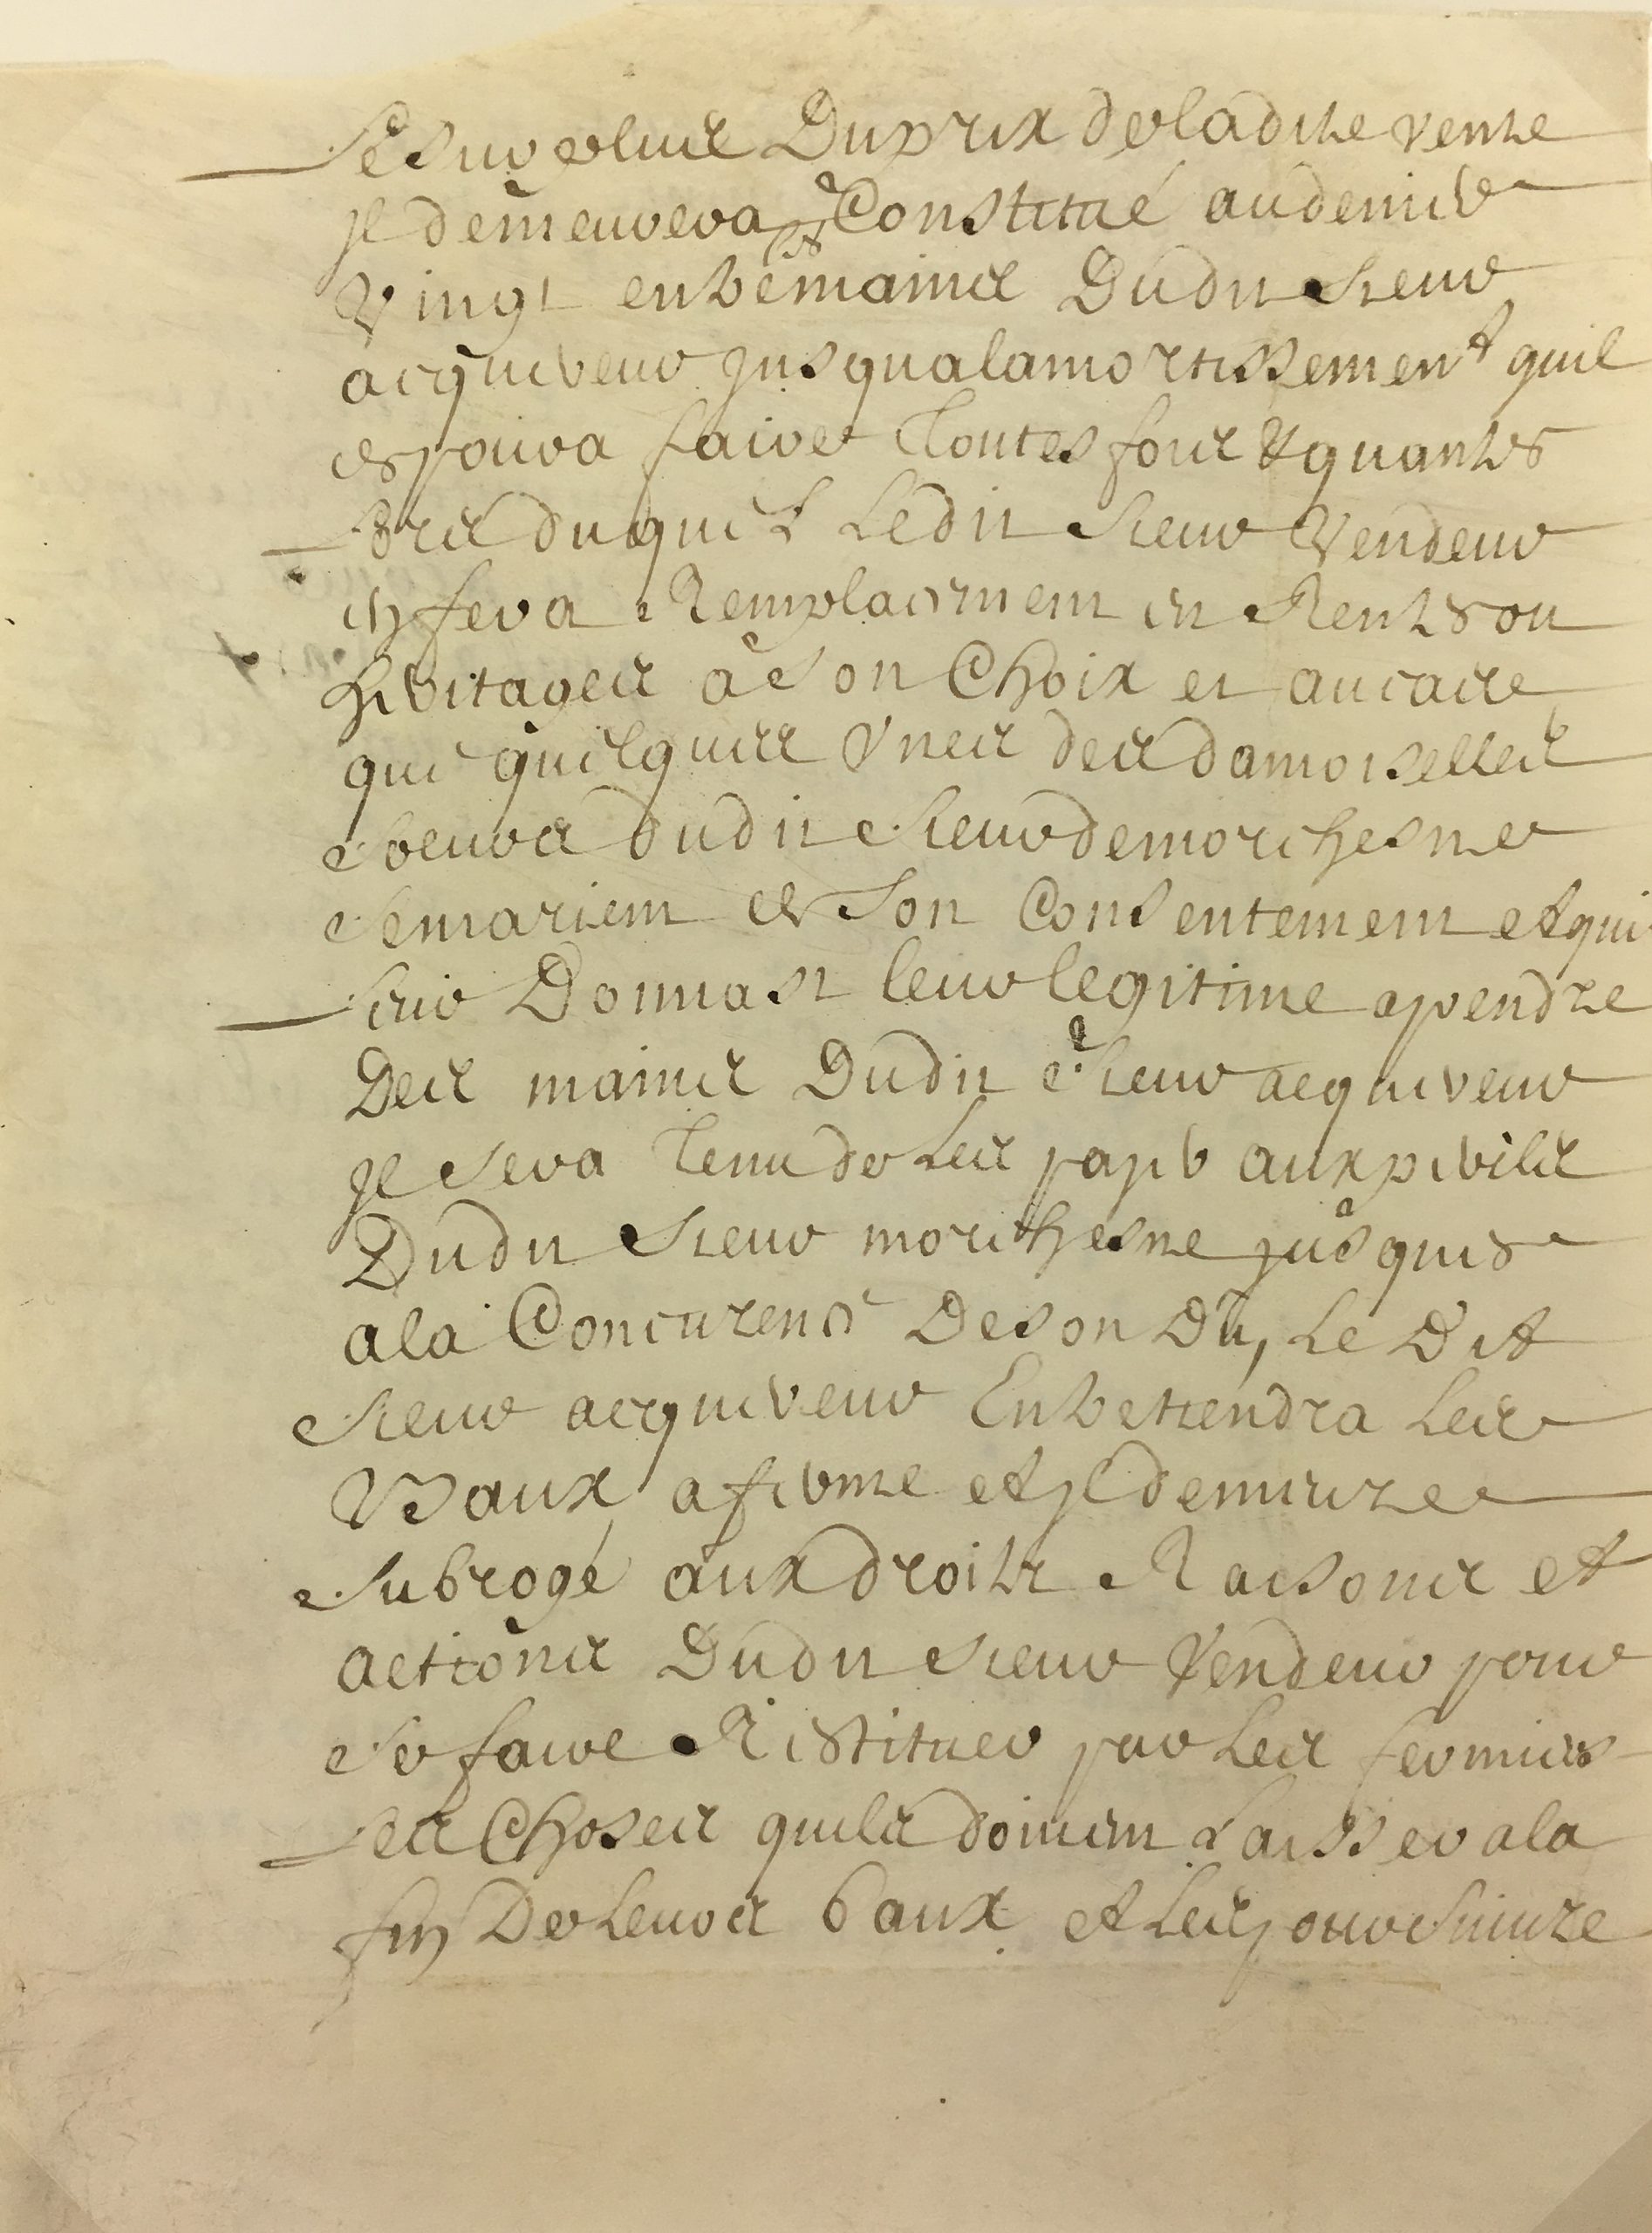 Le surplus Du prix de ladite vente
Il demeurera Constitué au denier
Vingt entre mains Dudit sieur
acquereur Jusqua lamortissement quil
en poura faire Toutes fois & quantes
Lors duquel Ledit sieur Vendeur
en fera Remplacement en Rentes ou
heritages a son Choix et au cas
que quelques Unes des damoiselles
soeurs dudit sieur de morchesne
se marient de son Consentement et qui
leur Donnast leur legitime aprendre
Des mains Dudit sieur acquereur
Il sera Tenu de Les payer aux perils
Dudit sieur morchesne jusques
a la Concurence De son Dû, Le Dit
sieur acquereur Entretiendra Les
Baux a ferme et Il demeure
subrogé aux droits Raisons et
actions Dudit sieur Vendeur pour
se faire Restituer par Les fermiers
Les Choses quils doivent Laisser a la
fin De Leurs baux et Les poursuivre